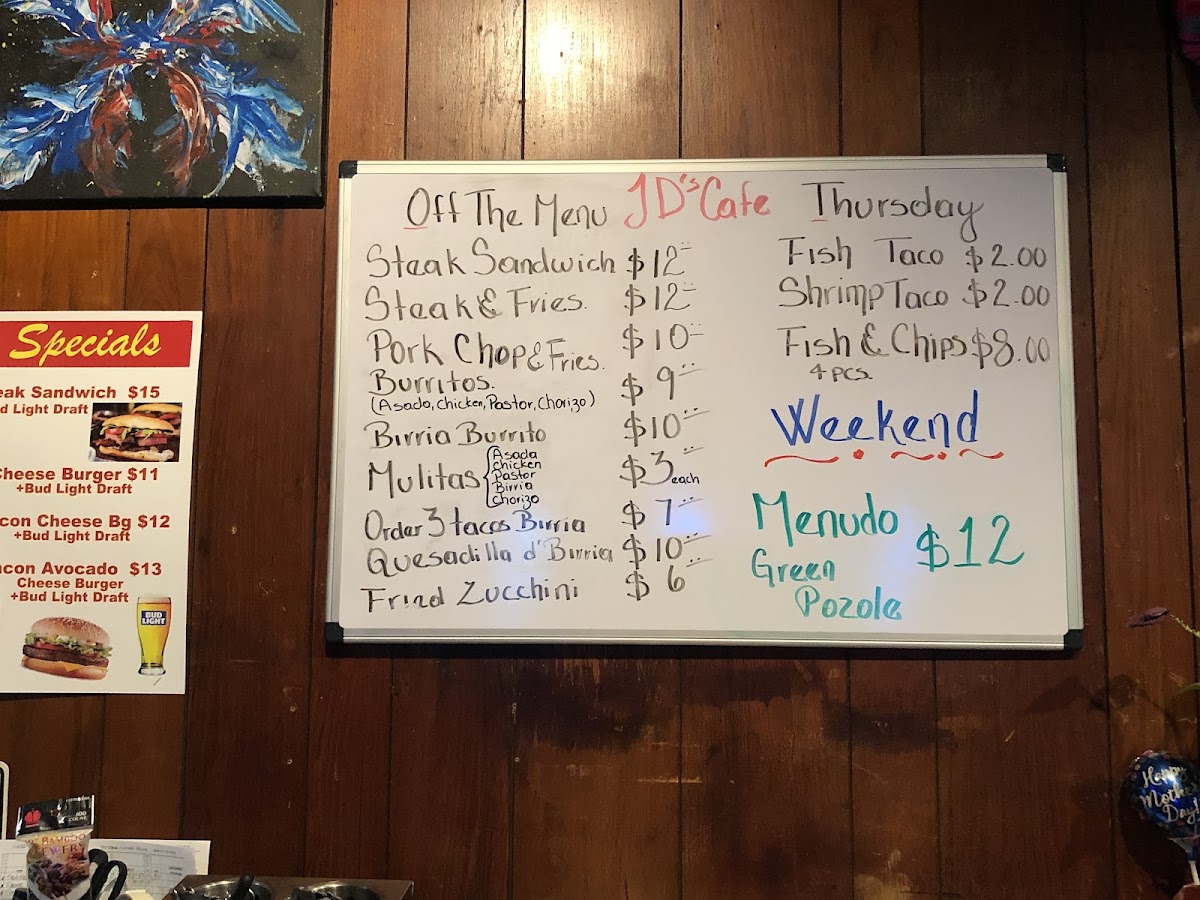 Specials
eak Sandwich $15
d Light Draft
Cheese Burger $11
+Bud Light Draft
con Cheese Bg $12
+Bud Light Draft
acon Avocado $13
Cheese Burger
+Bud Light Draft
BUD LIGHT
Off The Menu JD's Cafe Thursday
Steak Sandwich $12
Steak & Fries. $12
Pork Chop & Fries. $10
Burritos. $9
(Asada, Chicken, Pastor, Chorizo)
Birria Burrito $10
Mulitas $3 each
Asada
Chicken
Pastor
Birria
Chorizo
Order 3 tacos Birria $7
Quesadilla d' Birria $10
Fried Zucchini $6
Fish Taco $2.00
Shrimp Taco $2.00
Fish & Chips $8.00
4 pcs.
Weekend
Menudo $12
Green
Pozole
Happy
Mother
Day!